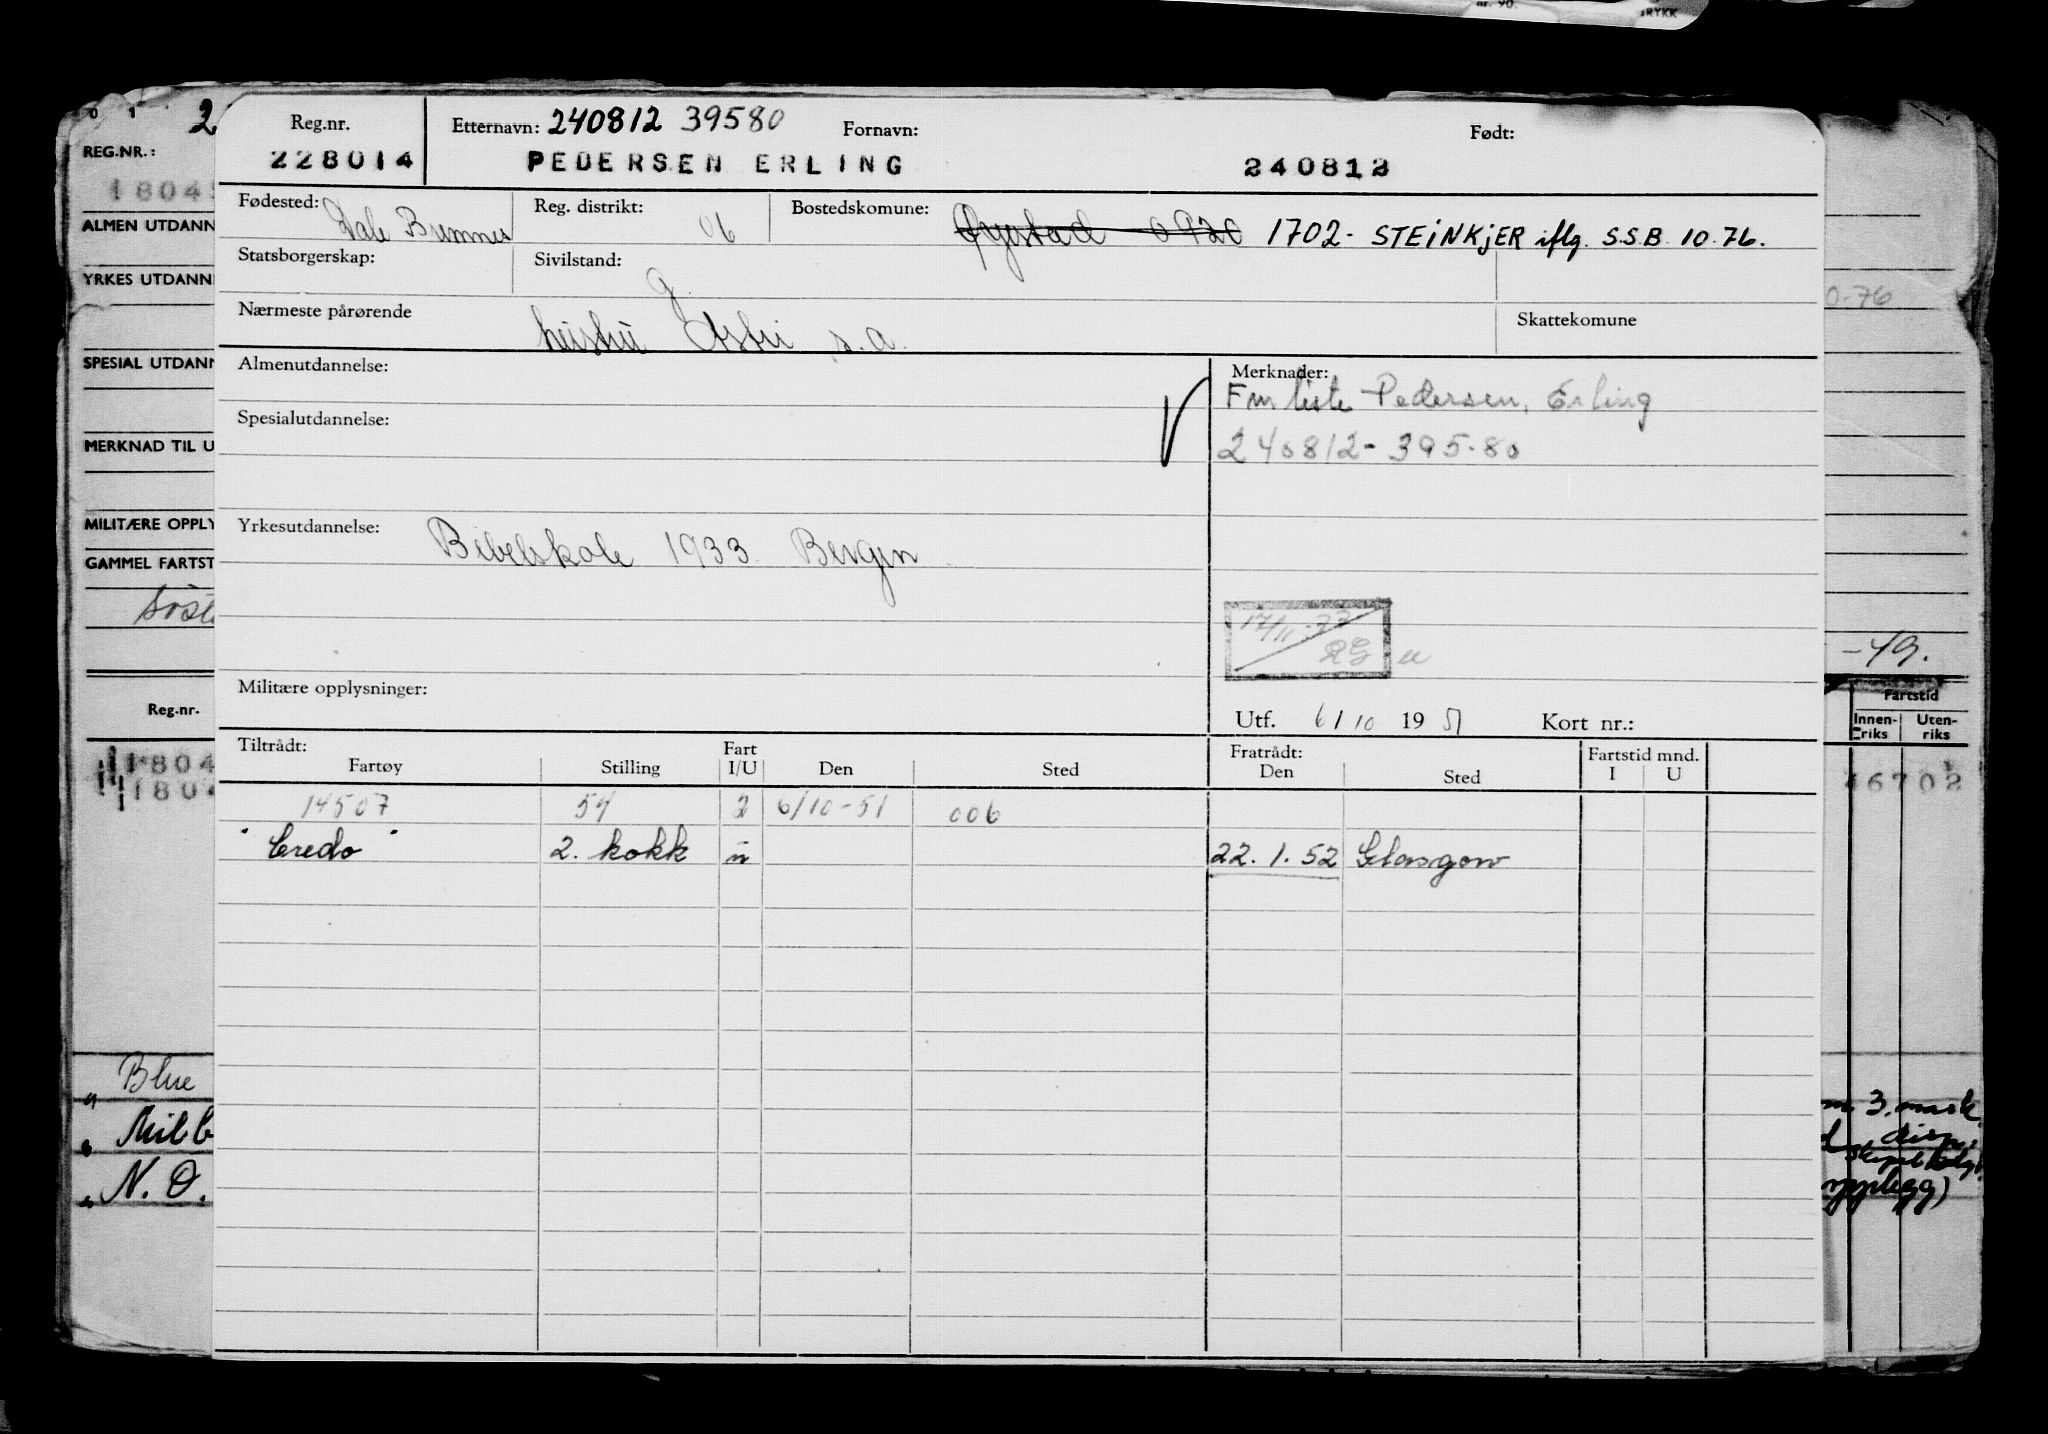 nr. 90.
RYKK
0 1 2
REG.NR.:
1804
ALMEN UTDANN
YRKES UTDANN
SPESIAL UTDANN
MERKNAD TIL U
MILITÆRE OPPLY
GAMMEL FARTST
Reg.nr.
1804
180
Blue
N. O.
Reg.nr. Etternavn: 240812 39580 Fornavn: Født:
228014 PEDERSEN ERLING 240812
Fødested: Dale Bremnes Reg. distrikt: 06 Bostedskomune: Øyestad 0920 1702- STEINKJER iflg. S.S.B. 10.76.
Statsborgerskap: Sivilstand: g.
Nærmeste pårørende hustru s.a. Skattekomune
Almenutdannelse: Merknader:
Fmr liste Pedersen, Erling
Spesialutdannelse:
240812- 395.80
Yrkesutdannelse: Bibelskole 1933. Bergen
17/11-77
RG
Militære opplysninger:
Utf. 6/10 1951 Kort nr.:
Tiltrådt: Fart Fratrådt: Fartstid mnd.
Fartøy Stilling I/U Den Sted Den Sted I U
14507 54 2 6/10-51 006
"Credo" 2. kokk u 22.1.52 Glasgow
0-76
-49.
Fartstid
Innen- Uten-
riks riks
46702
3. mask.
opplegg)